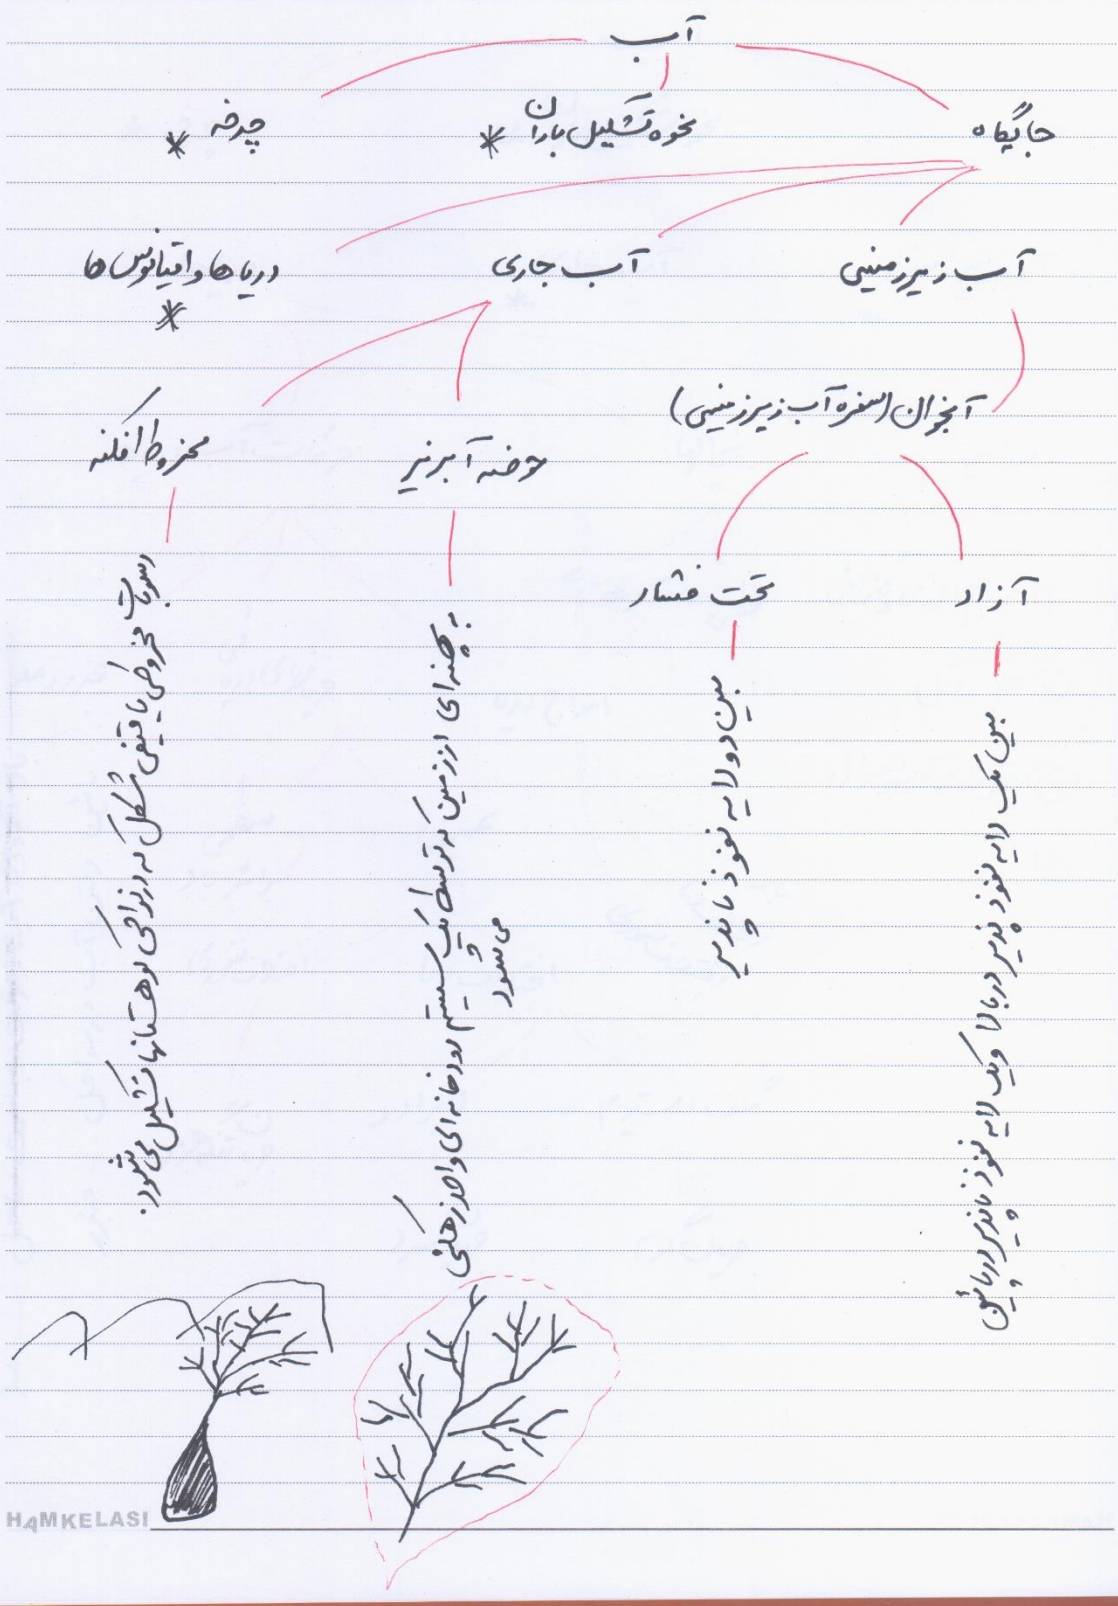 آب
جایگاه
نحوه تشکیل باران *
چرخه *
آب زیرزمینی
آب جاری
دریاها و اقیانوس ها
*
آبخوان (سفره آب زیرزمینی)
حوضه آبریز
مخروط افکنه
آزاد
تحت فشار
بین یک لایه نفوذ پذیر در بالا و یک لایه نفوذ ناپذیر در پائین
بین دو لایه نفوذ ناپذیر
به پهنه ای از زمین که توسط یک سیستم رودخانه ای واحد زهکشی
می شود
رسوبات مخروطی یا قیفی شکل که در نواحی کوهستانها تشکیل می شود.
HAMKELASI